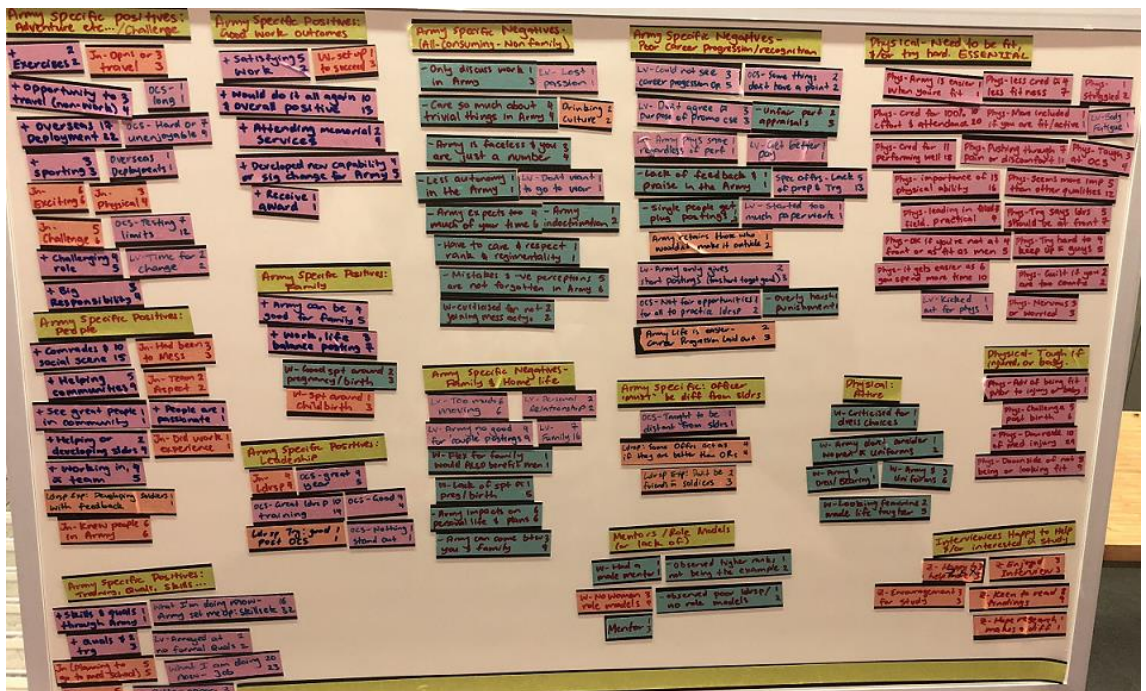 Army Specific positives:
Adventure etc.../Challenge
+ Exercises 2 2
Jn- Opns or 3
travel 3
+ Opportunity to 3
travel (non-work) 3
OCS- 1
long 1
+ Overseas 17
Deployment 22
OCS- Hard or 7
unenjoyable 9
+ sporting 3 3
Overseas
Deployments 1
Jn- Exciting 6
Jn- Physical 3 4
Jn- Challenge 5
OCS- Testing 7
limits 12
+ Challenging 4
role 5
LV- Time for 2
change 2
+ Big 3
Responsibility 9
Army Specific Positives:
People
+ Comrades & 10
social scene 15
Jn- Had been 3
to Mess 3
+ Helping 5
communities 9
Jn- Team 2
Aspect 2
+ See great people 1
in community 1
+ People are 1
passionate 1
+ Helping or 2
developing sldrs 9
Jn- Did work 1
experience 1
+ Working in 4
a team 5
Ldrsp Exp: Developing Soldiers 1
with feedback 1
Jn- Knew people 6
in Army 6
Army Specific Positives:
Training, Quals, Skills...
+ Skills & quals 1
through Army 1
What I'm doing now- 16
Army set me up: skillsets 32
+ Quals & 2
trg 3
LV- Annoyed at 2
no formal Quals 2
Jn (planning to 5
go to med school) 5
What I am doing 20
now- Job 23
Army Specific Positives:
Good Work outcomes
+ Satisfying 5
Work 2
W- set up 1
to succeed 3
+ Would do it all again 10
& overall positive 13
+ Attending memorial 2
Services
+ Developed new capability 4
or sig change for Army 5
+ Receive 1
award 1
Army Specific Positives:
Family
+ Army can be 4
good for family 5
+ Work, life 3
balance posting 7
W- Good spt around 2
pregnancy/birth 3
W- Spt around 1
Childbirth 3
Army Specific Positives:
Leadership
Jn- Ldrsp 9
OCS- great 4
year 5
OCS- Great ldrsp 10
training 19
OCS- Good 4
Ldrsp Trg: good 1
Post OCS 1
OCS- Nothing 1
stand out 1
Army Specific Negatives-
(All-Consuming - Non family)
- Only discuss work 1
in Army 3
LV- Lost 1
passion 1
- Care so much about 4
trivial things in Army 9
Drinking 2
culture 2
- Army is faceless & you 3
are just a number 4
- Less autonomy 1
in the Army 1
LV- Don't want 1
to go to war 1
- Army expects too 4
much of your time 6
- Army 1
indoctrination 2
- Have to care & respect
rank & regimentality 1
- Mistakes & -ve perceptions 5
are not forgotten in Army 6
W- Criticised for not 2
joining mess actys 2
Army Specific Negatives-
Family & Home life
LV- Too much 6
moving 6
LV- Personal 2
Relationship 2
LV- Army no good 9
for couple postings 9
LV- 7
Family 16
W- Flex for family
would ALSO benefit men 1
W- Lack of spt @ 1
preg/birth 5
- Army impacts on 6
personal life & plans 6
- Army can come btwn 3
you & family 4
Army Specific Negatives-
Poor career progression/recognition
LV- Could not see 3
career progression Op 5
OCS- Some things 2
don't have a point 2
LV- Don't agree 3
purpose of promo cse 3
- Unfair perf 2
appraisals 3
- Army pays same 1
regardless of perf 1
LV- Get better 1
pay 1
- Lack of feedback & 1
praise in the Army 1
Spec offrs- Lack 5
of prep & Trg 13
- Single people get 1
plug postings 1
LV- Started too 1
much paperwork 1
Army retains those who 1
wouldn't make it outside 2
LV- Army only gives 2
short postings
OCS- Not fair opportunities 1
for all to practice ldrsp 2
- Overly harsh
punishments
Army Life is easier- 2
Career Progression Laid out 3
Army Specific: officer
'must' be diff from sldrs
OCS- Taught to be 1
distant from sldrs 1
Ldrsp: Some Offrs act as 4
if they are better than ORs 4
Ldrsp Exp: Don't be 2
friends = soldiers 3
Mentors / Role Models
(or lack of)
W- Had a
male mentor 1
- Observed higher ranks 1
not being the example 2
W- No Women 3
role models 4
- Observed poor ldrsp/ 1
no role models 2
Mentor 1 3
Physical- Need to be fit,
&/or try hard. ESSENTIAL
Phys- Army is easier 1
when you're fit 1
Phys- less cred @ 9
less fitness 7
Phys- 1
Struggled 2
Phys- Cred for 100%
effort & attendance 20
Phys- More included 1
if you are fit/active 1
LV- Body
Fatigue
Phys- Cred for 11
performing well 18
Phys- Pushing through 7
pain or discomfort 12
Phys- Tough 3
at OCS 4
Phys- importance of 13
physical ability 16
Phys- Seems more imp 5
than other qualities 12
Phys- leading in
field, practical 9
Phys- Trg says ldrs 5
should be at front 7
Phys- OK if you're not at 4
front or as fit as men 5
Phys- Try hard to 4
keep up & guys 5
Phys- it gets easier as 6
you spend more time 10
Phys- Guilt if you 2
are too count 2
LV- Kicked 1
out for phys 1
Phys- Nervous 3
or worried 3
Physical:
Attire
W- Criticised for 1
dress choices 1
W- Army don't consider 1
women & uniforms 2
W- Army & 1
Dress/Bearing 1
W- Army & 3
Uniforms 6
W- Looking feminine 2
made life tougher 3
Physical- Tough if
injured, or baby.
Phys- Adv of being fit 1
prior to injury or baby 1
Phys- Challenge 5
post birth 6
Phys- Downside 10
of med injury 24
Phys- Downside of not 8
being or looking fit 9
Interviewees Happy to Help
&/or interested in study
Z- Enjoyed 3
Interview 3
Z- Encouragement 3
for study 3
Z- Keen to read 8
findings 9
Z- Hope research 1
makes a diff 1